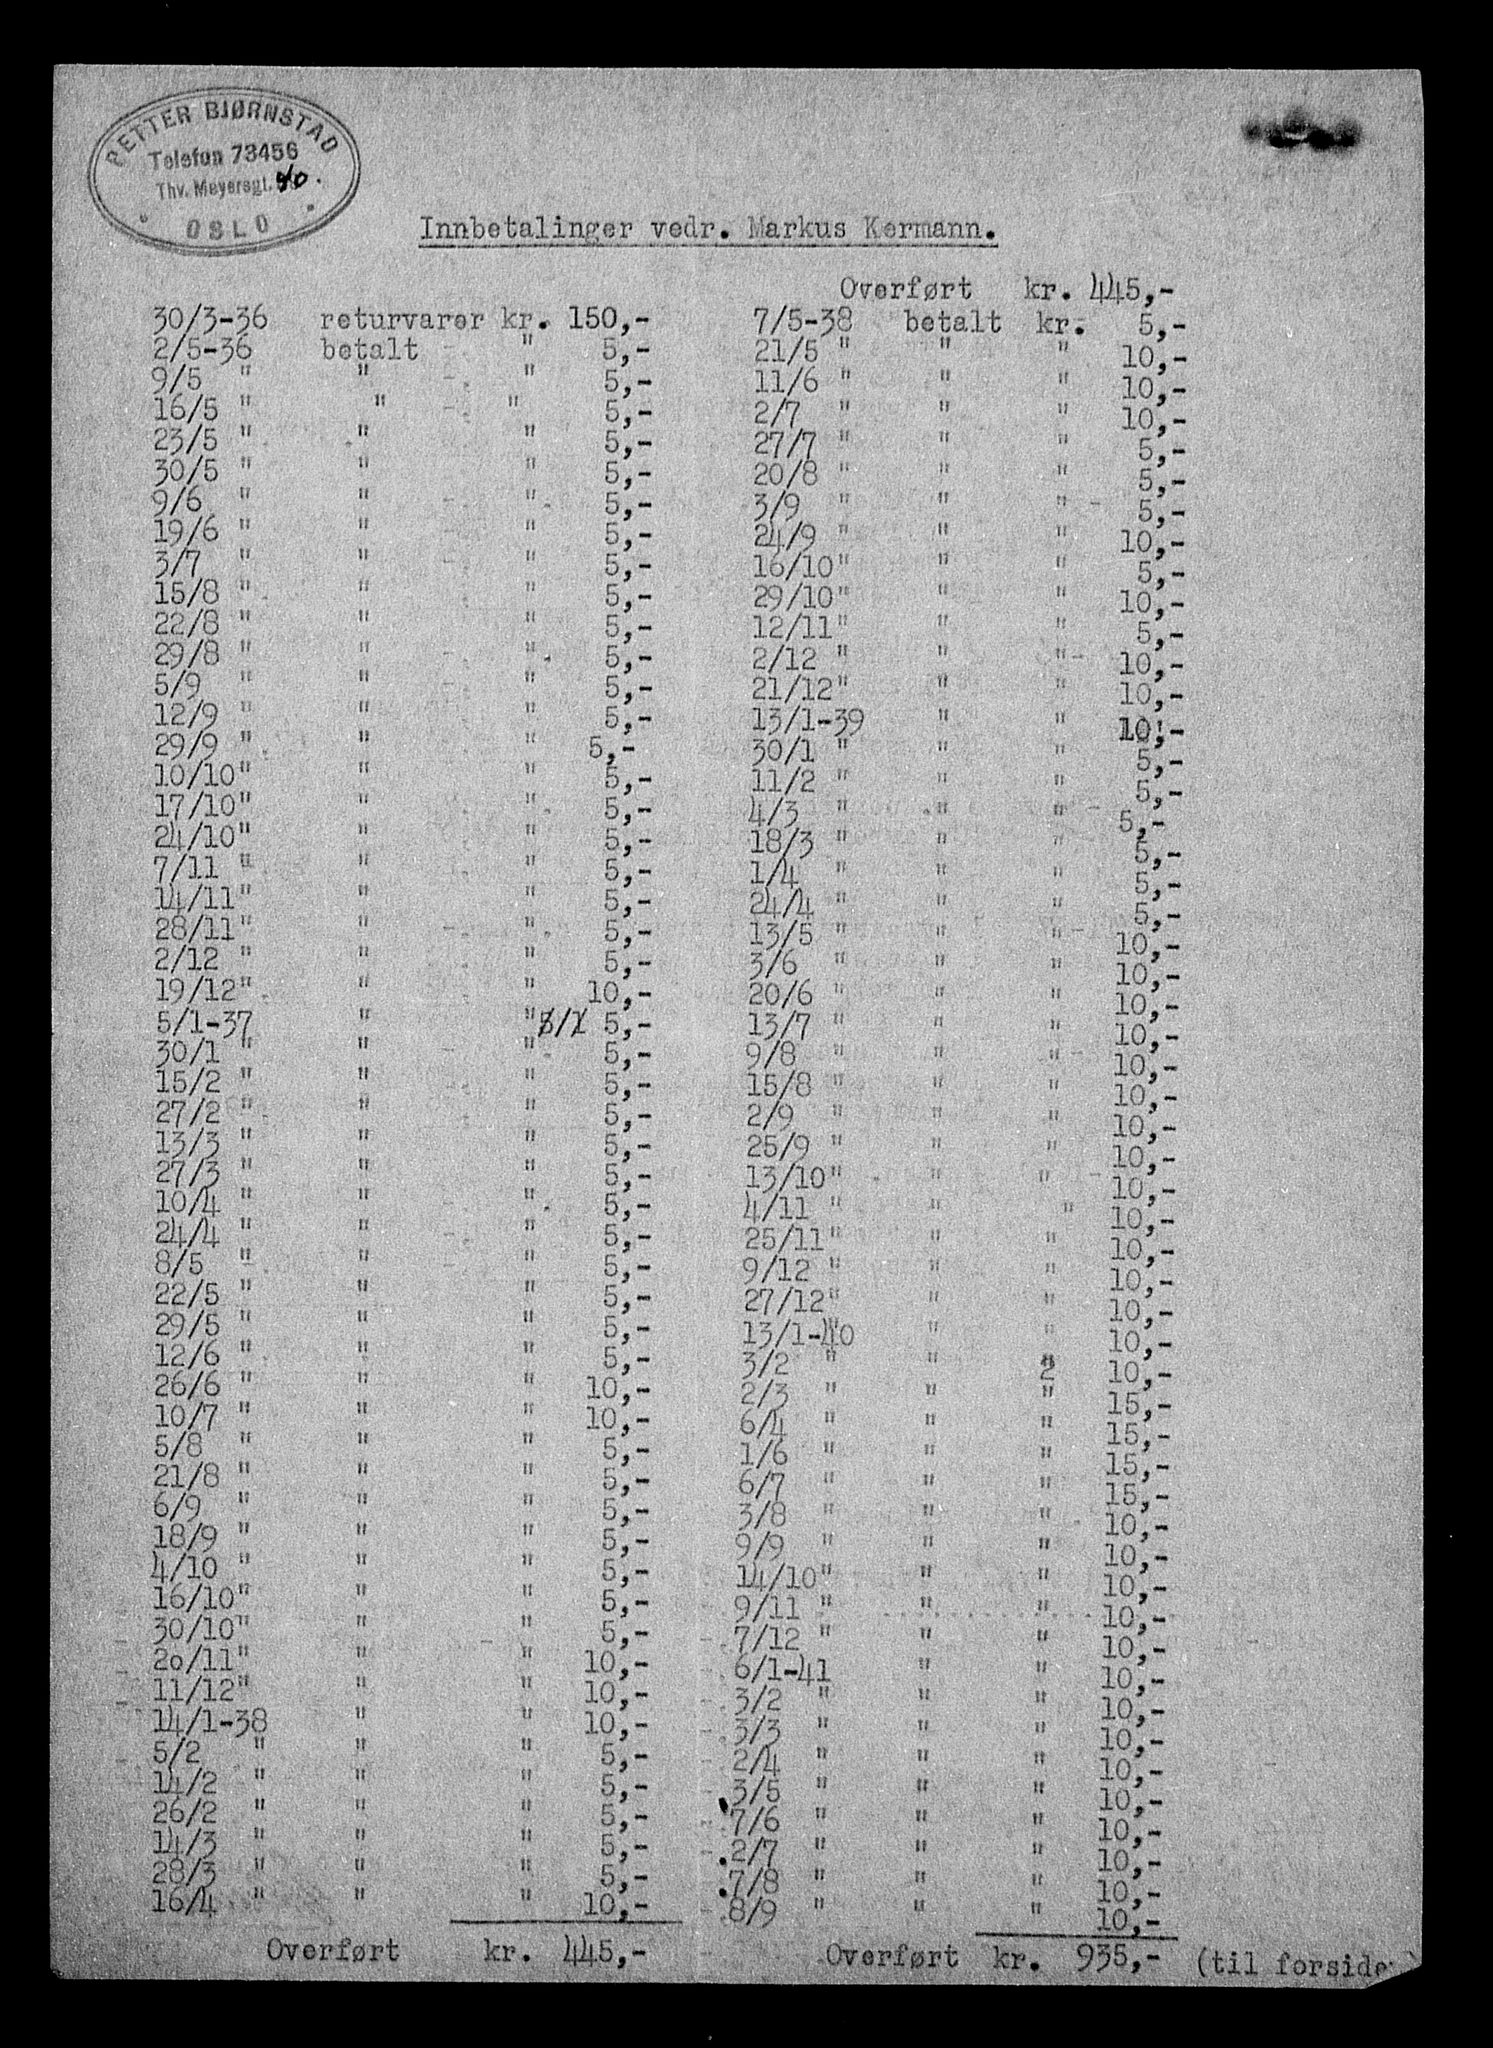 PETTER BJØRNSTAD
Telefon 73456
Thv. Meyersgt. 40.
OSLO
Innbetalinger vedr. Markus Kermann.
30/3-36 returvarer kr. 150,-
2/5-36 betalt " 5,-
9/5 " " " 5,-
16/5 " " " 5,-
23/5 " " " 5,-
30/5 " " " 5,-
9/6 " " " 5,-
19/6 " " " 5,-
3/7 " " " 5,-
15/8 " " " 5,-
22/8 " " " 5,-
29/8 " " " 5,-
5/9 " " " 5,-
12/9 " " " 5,-
29/9 " " " 5,-
10/10" " " 5,-
17/10" " " 5,-
24/10" " " 5,-
7/11 " " " 5,-
14/11" " " 5,-
28/11" " " 5,-
2/12 " " " 5,-
19/12" " " 10,-
5/1-37 " " 5,-
30/1 " " " 5,-
15/2 " " " 5,-
27/2 " " " 5,-
13/3 " " " 5,-
27/3 " " " 5,-
10/4 " " " 5,-
24/4 " " " 5,-
8/5 " " " 5,-
22/5 " " " 5,-
29/5 " " " 5,-
12/6 " " " 5,-
26/6 " " " 10,-
10/7 " " " 10,-
5/8 " " " 5,-
21/8 " " " 5,-
6/9 " " " 5,-
18/9 " " " 5,-
4/10 " " " 5,-
16/10" " " 5,-
30/10" " " 5,-
20/11" " " 10,-
11/12" " " 10,-
14/1-38 " " 10,-
5/2 " " " 5,-
14/2 " " " 5,-
26/2 " " " 5,-
14/3 " " " 5,-
28/3 " " " 5,-
16/4 " " " 10,-
Overført kr. 445,-
Overført kr. 445,-
7/5-38 betalt kr. 5,-
21/5 " " " 10,-
11/6 " " " 10,-
2/7 " " " 10,-
27/7 " " " 5,-
20/8 " " " 5,-
3/9 " " " 5,-
24/9 " " " 10,-
16/10" " " 5,-
29/10" " " 10,-
12/11" " " 5,-
2/12 " " " 10,-
21/12" " " 10,-
13/1-39 " " 10,-
30/1 " " " 5,-
11/2 " " " 5,-
4/3 " " " 5,-
18/3 " " " 5,-
1/4 " " " 5,-
24/4 " " " 5,-
13/5 " " " 10,-
3/6 " " " 10,-
20/6 " " " 10,-
13/7 " " " 10,-
9/8 " " " 10,-
15/8 " " " 10,-
2/9 " " " 10,-
25/9 " " " 10,-
13/10" " " 10,-
4/11 " " " 10,-
25/11" " " 10,-
9/12 " " " 10,-
27/12" " " 10,-
13/1-40 " " 10,-
3/2 " " " 10,-
2/3 " " " 15,-
6/4 " " " 15,-
1/6 " " " 15,-
6/7 " " " 15,-
3/8 " " " 10,-
9/9 " " " 10,-
14/10" " " 10,-
9/11 " " " 10,-
7/12 " " " 10,-
6/1-41 " " 10,-
3/2 " " " 10,-
3/3 " " " 10,-
2/4 " " " 10,-
3/5 " " " 10,-
7/6 " " " 10,-
2/7 " " " 10,-
7/8 " " " 10,-
8/9 " " " 10,-
Overført kr. 935,- (til forside)